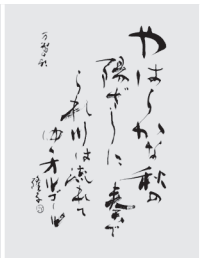 やはらかな秋の
陽ざしに奏で
られ川は流れて
ゆくオルゴール